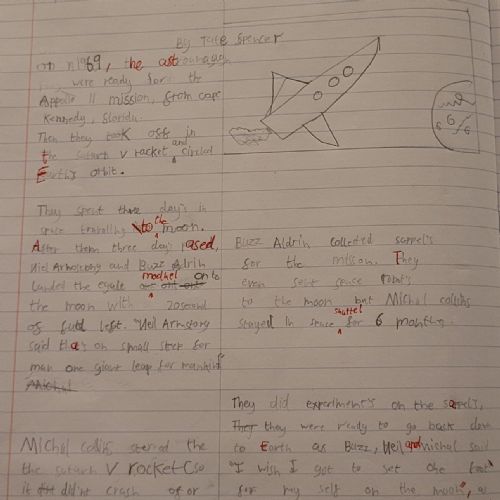 By Tate Spencer
on n1969, the astronauts
were ready for the
Appollo 11 mission, from cape
Kennedy, floridu.
Then they took off in
the saturn V rocket and circled
Earth's orbit.
They spent three day's in
space travelling to the moon.
After them three day's pased,
Niel Armstrong and Buzz Aldrin
landed the egale modhel onto
the moon with 20 second
of fuel left. "Neil Armstrong
said that's on small step for
man one giant leap for mankind"
Michal
Michal collins steered the
the saturn V rocket (so
it didint crash of or
Buzz Aldrin collected sampel's
for the misson. They
even sent space robot's
to the moon but Michal collins
stayed in space shuttel for 6 months.
They did experiment's on the sampel's,
They they were ready to go back down
to Earth as Buzz, Neil and michal said
"I wish I got to set one foot
for my self on the moon", as